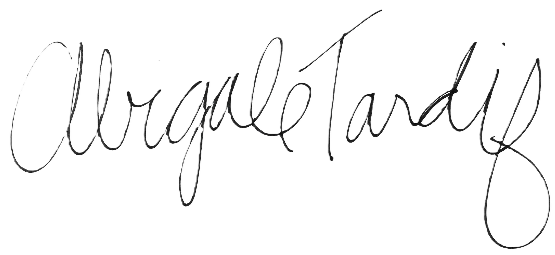 Abigale Tardif